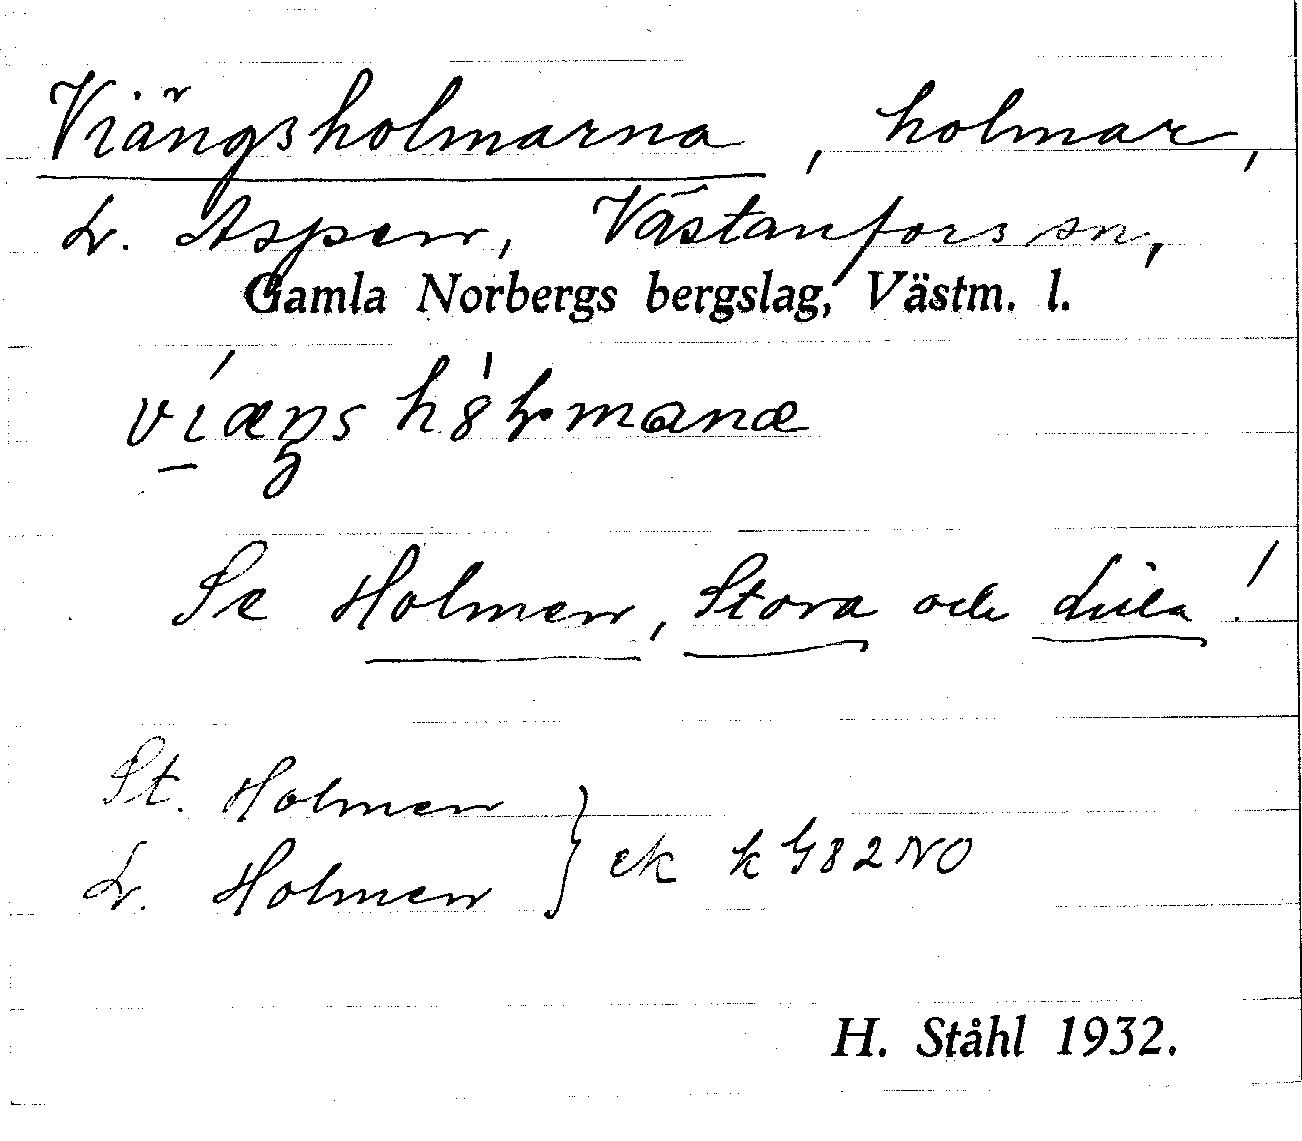 Viängsholmarna, holmar,
L. Aspen, Västanfors sn,
Gamla Norbergs bergslag, Västm. l.
Se Holmen, Stora och Lilla!
St. Holmen
L. Holmen } ek k G82NO
H. Ståhl 1932.